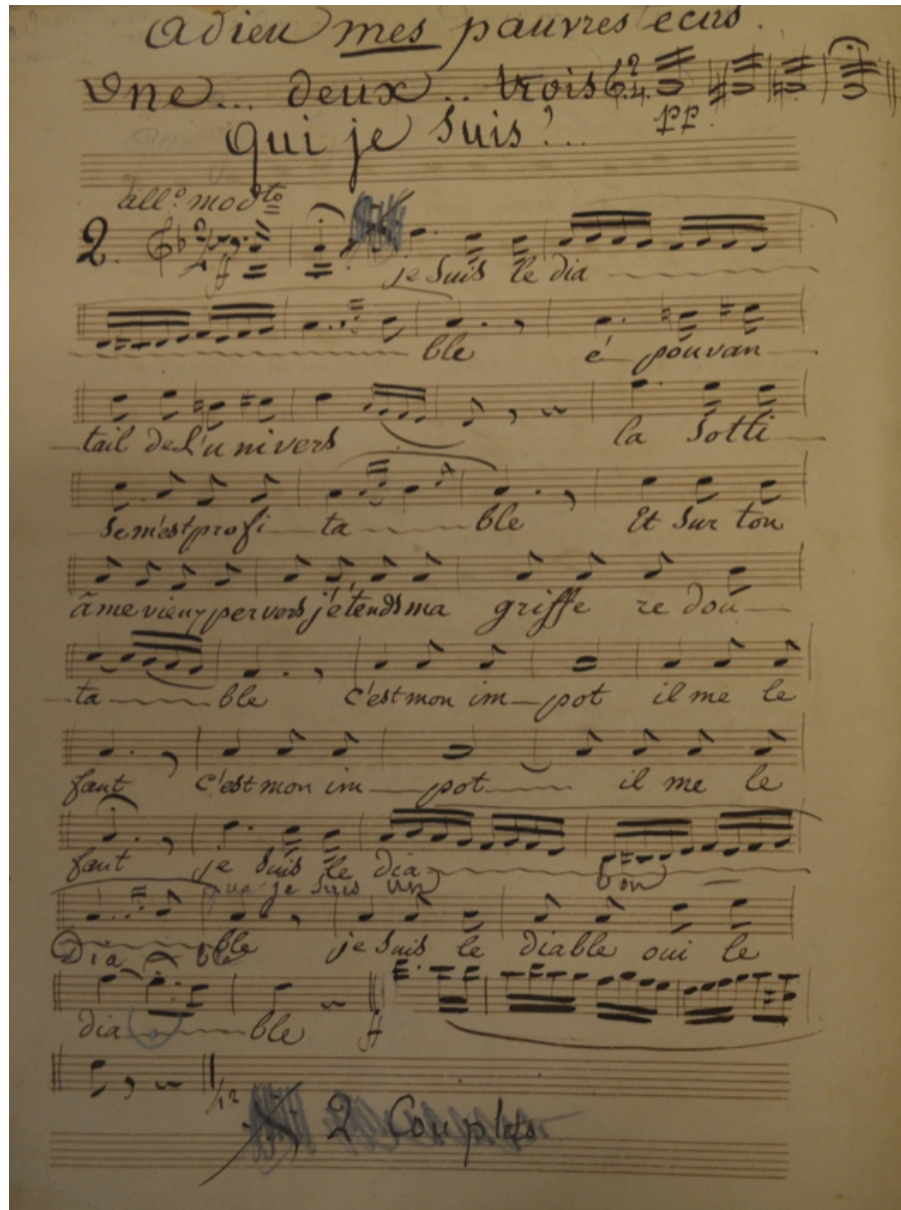 Adieu mes pauvres ecus.
Une... deux.. trois
pp.
qui je suis?...
all.° mod.to
2.
ff
je suis le dia
ble é pouvan
tail de l'u nivers la sotti
se m'est profi ta ble Et sur ton
âme vieux pervers j'étends ma griffe re dou
ta ble c'est mon im pot il me le
faut c'est mon im pot il me le
faut je suis le dia
que je suis un bon
ble je suis le diable oui le
Dia ble
dia ble ff
2 Couplets